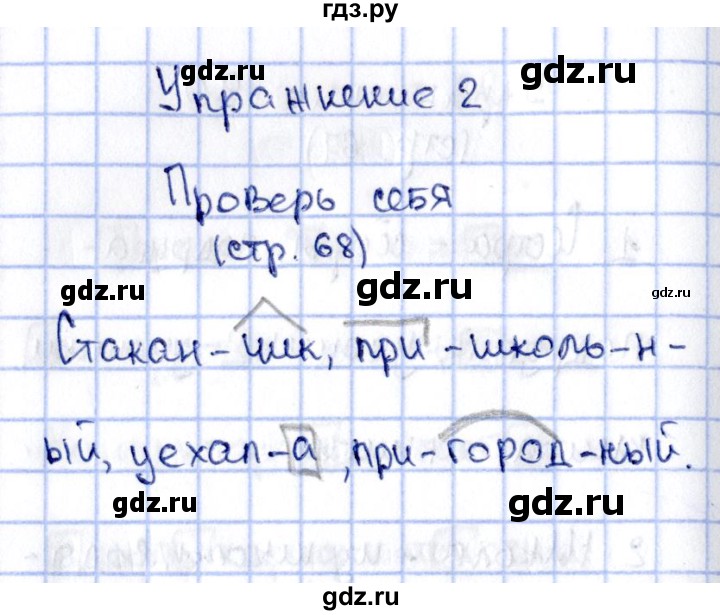 гдз.ру
gdz.ru
gdz.ru
Упражнение 2
Проверь себя
gdz.ru
(стр. 68)
gdz.ru
gdz.ru
gdz.ru
Стакан-чик, при-школь-н-
ый, уехал-а, при-город-ный.
gdz.ru
gdz.ru
gdz.ru